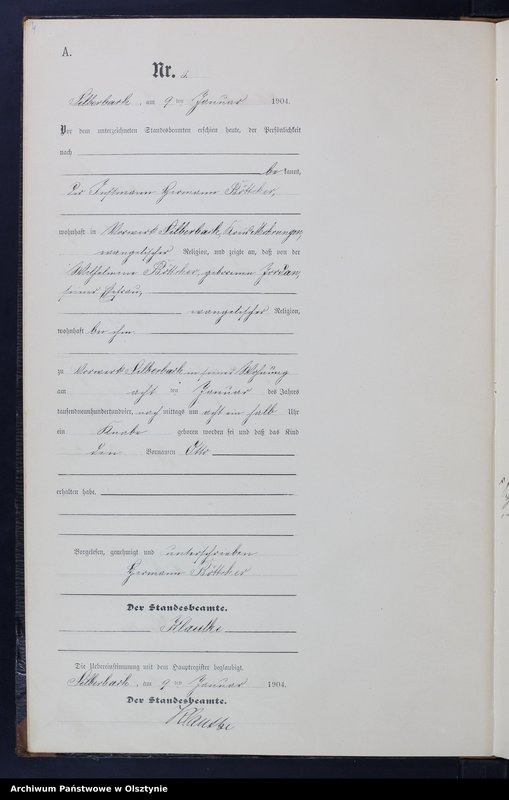 A.
Nr. 3.
Silberbach, am 9 ten Januar 1904.
Vor dem unterzeichneten Standesbeamten erschien heute, der Persönlichkeit
nach
be kannt,
der Instmann Hermann Böttcher,
wohnhaft in Vorwerk Silberbach, Kreis Mohrungen,
evangelischer Religion, und zeigte an, daß von der
Wilhelmine Böttcher, geborenen Jordan,
seiner Ehefrau,
evangelischer Religion,
wohnhaft bei ihm
zu Vorwerk Silberbach in seiner Wohnung
am acht ten Januar des Jahres
tausendneunhundertundvier, nach mittags um acht ein halb Uhr
ein Knabe geboren worden sei und daß das Kind
den Vornamen Otto
erhalten habe.
Vorgelesen, genehmigt und unterschrieben
Hermann Böttcher
Der Standesbeamte.
Klautke
Die Uebereinstimmung mit dem Hauptregister beglaubigt.
Silberbach, am 9 ten Januar 1904.
Der Standesbeamte.
Klautke
Archiwum Państwowe w Olsztynie